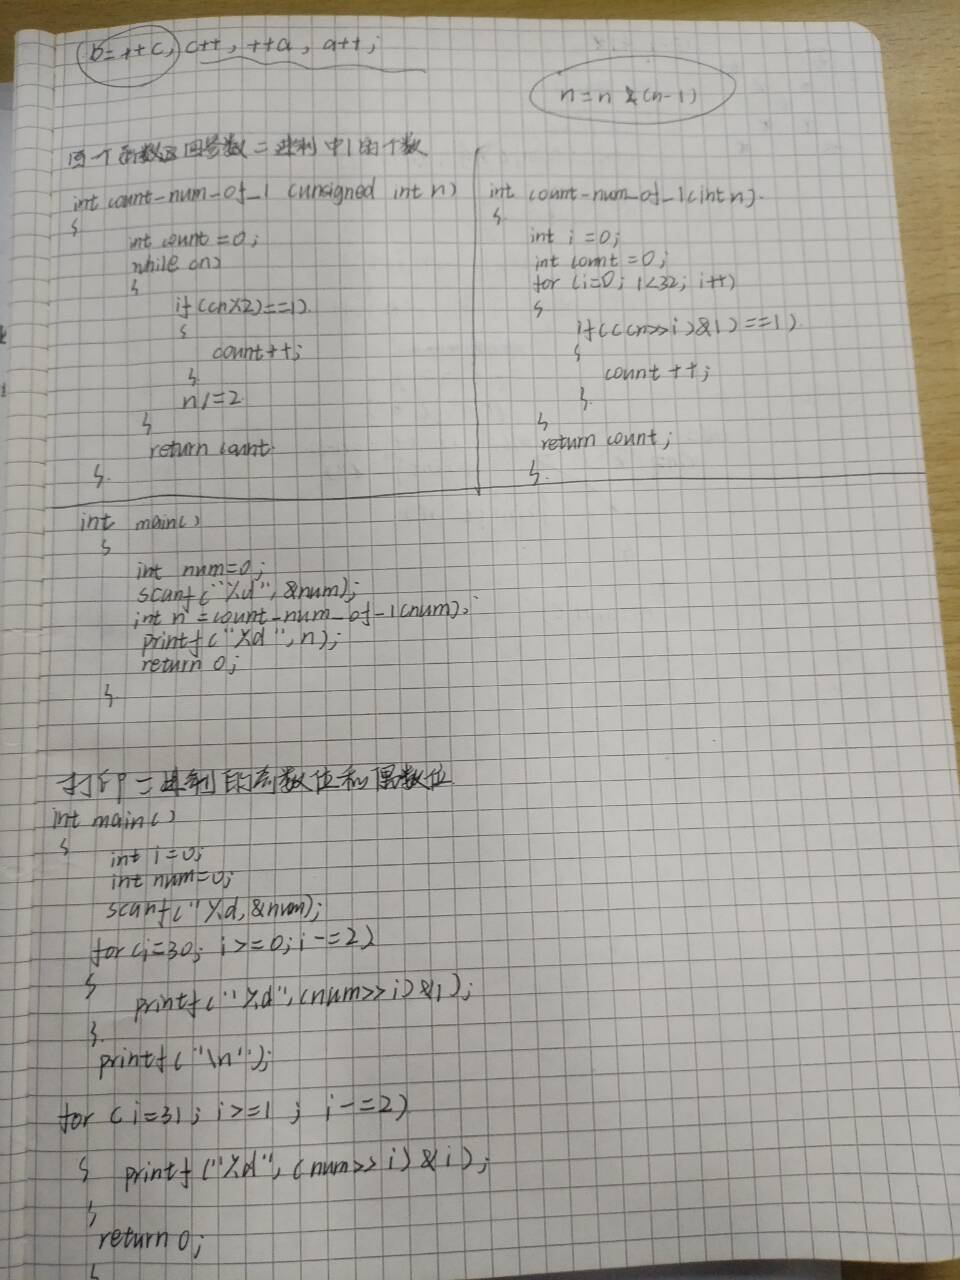 b=++c, c++, ++a, a++;
n=n&(n-1)
写个函数返回参数二进制中1的个数
int count-num-of_1 (unsigned int n)
{
int count=0;
while(n)
{
if((n%2)==1)
{
count++;
}
n/=2
}
return count.
}
int count-num_of_1(int n).
{
int i=0;
int count=0;
for (i=0; i<32; i++)
{
if(((n>>i)&1)==1)
{
count++;
}
}
return count;
}
int main()
{
int num=0;
scanf("%d",&num);
int n=count-num_of-1(num);
printf("%d",n);
return 0;
}
打印二进制的奇数位和偶数位
int main()
{
int i=0;
int num=0;
scanf("%d,&num);
for(i=30; i>=0;i-=2)
{
printf("%d",(num>>i)&1);
}
printf("\n");
for (i=31; i>=1; i-=2)
{ printf("%d",(num>>i)&i);
}
return 0;
}